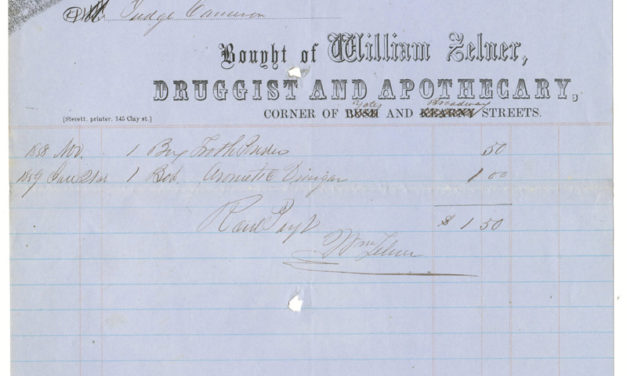 Judge Cameron
Bought of William Zelner,
DRUGGIST AND APOTHECARY,
Yates Broadway
CORNER OF BUSH AND KEARNY STREETS.
[Sterett, printer, 145 Clay st.]
1858 Nov. 1 Box Tooth Powder 50
1859 1 Bot Aromatic Vinegar 1 00
Recd Payt $1 50
Wm Zelner